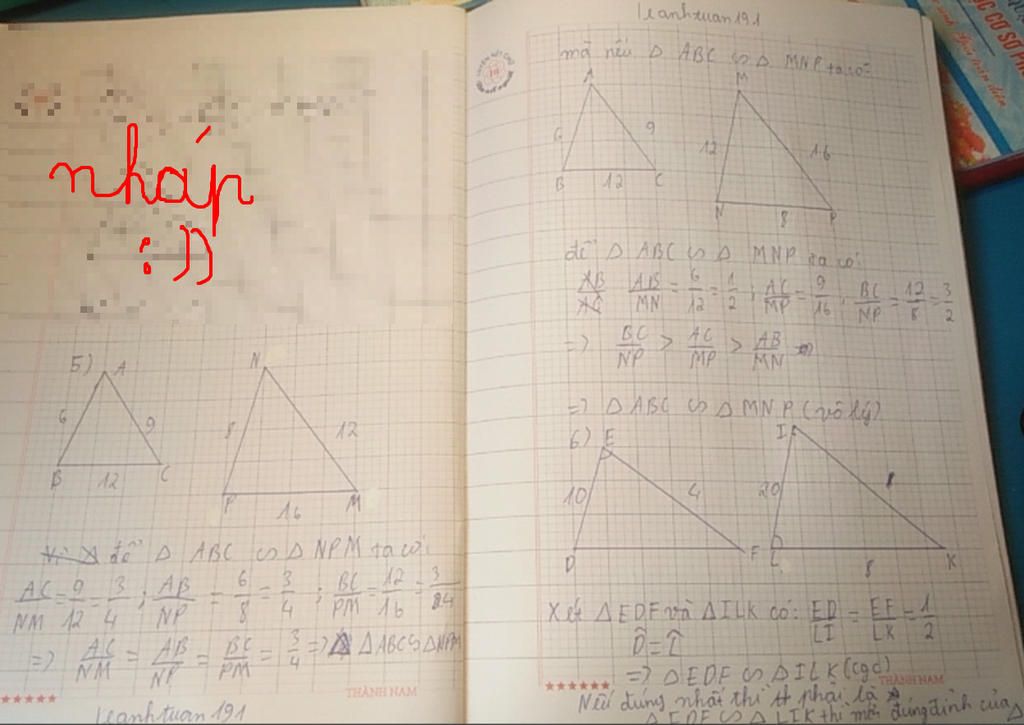 nháp
:))
5)
A
6
9
B
12
C
N
8
12
P
16
M
để Δ ABC ∽ Δ NPM ta có:
AC/NM = 9/12 = 3/4 ; AB/NP = 6/8 = 3/4 ; BC/PM = 12/16 = 3/4
=> AC/NM = AB/NP = BC/PM = 3/4 => Δ ABC ∽ Δ NPM
THÀNH NAM
leanhtuan191
leanhtuan191
mà nếu Δ ABC ∽ Δ MNP ta có:
A
6
9
B
12
C
M
12
16
N
8
P
để Δ ABC ∽ Δ MNP ta có:
AB/AC AB/MN = 6/12 = 1/2 ; AC/MP = 9/16 ; BC/NP = 12/8 = 3/2
=> BC/NP > AC/MP > AB/MN
=> Δ ABC ∽ Δ MNP (vô lý)
6)
E
10
4
D
F
I
20
L
8
K
Xét Δ EDF và Δ ILK có: ED/LI = EF/LK = 1/2
D̂ = L̂
=> Δ EDF ∽ Δ ILK (cgc)
THÀNH NAM
Nếu đúng nhất thì phải là
Δ EDF ∽ Δ LIK thì mới đúng đỉnh của Δ